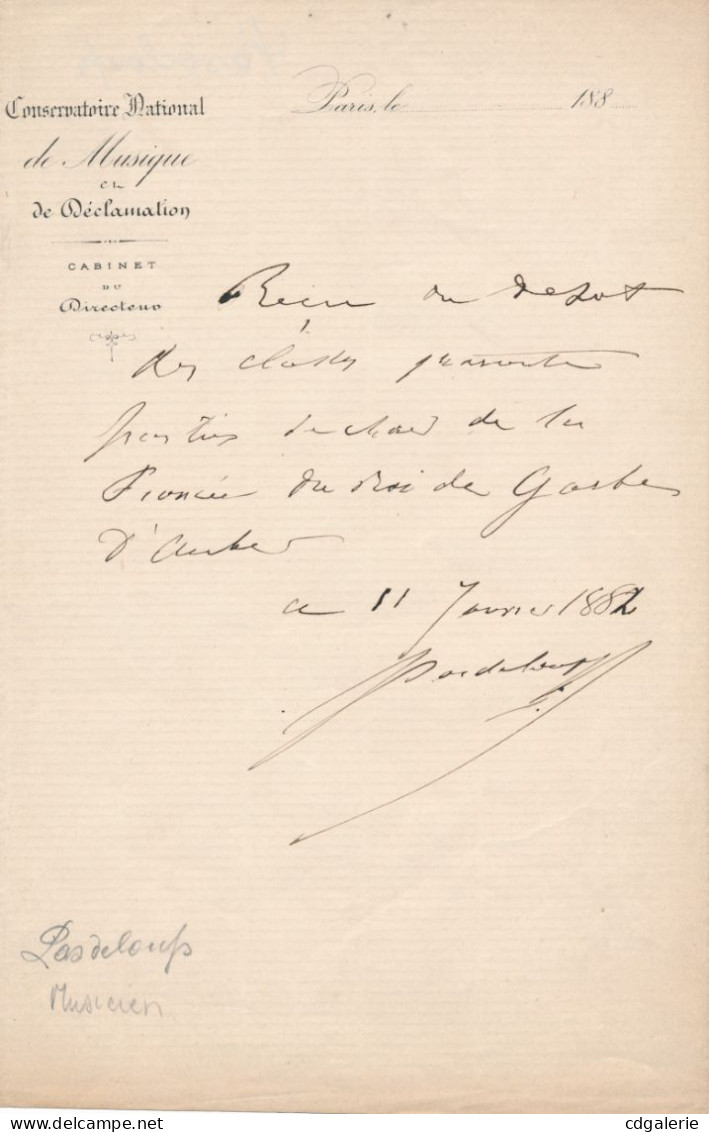 Conservatoire National
de Musique
et
de Déclamation
CABINET
DU
Directeur
Paris, le 188
Recu du depot
des classes quarante
parties de chœur de la
Fiancée du Roi de Garbe
D'Auber
ce 11 Janvier 1882
Pasdeloup
Pasdeloup
Musicien
cdgalerie